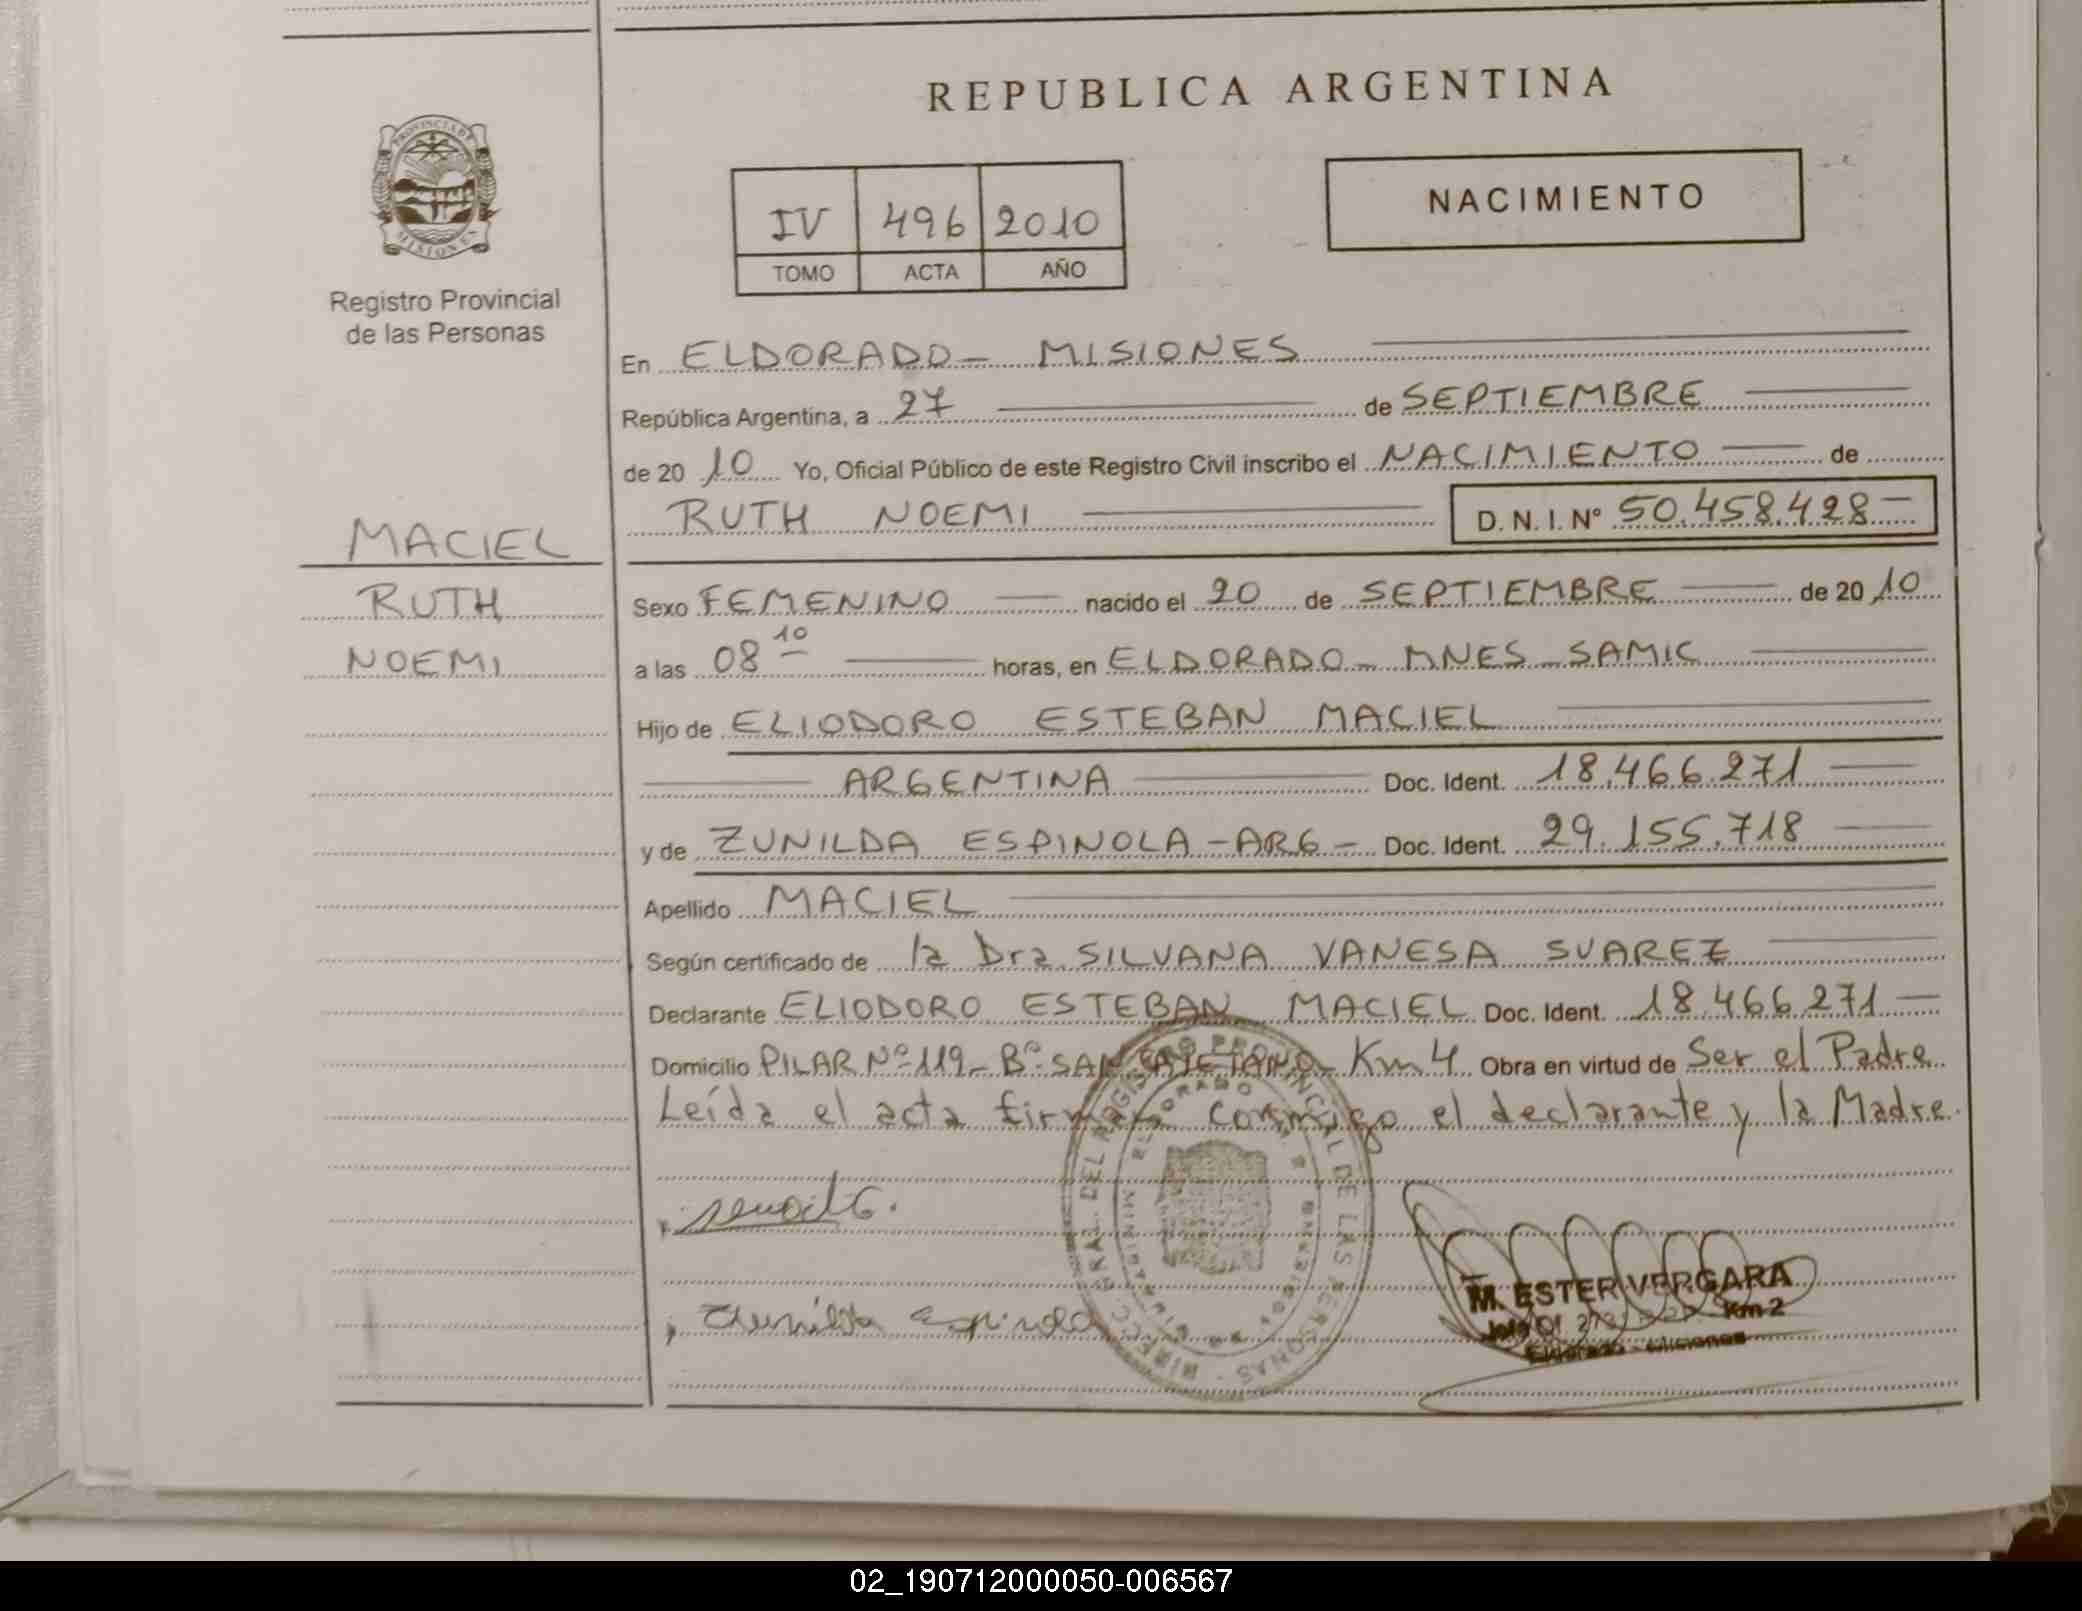 REPUBLICA ARGENTINA
PROVINCIA DE
MISIONES
Registro Provincial
de las Personas
IV 496 2010
TOMO ACTA AÑO
NACIMIENTO
En ELDORADO - MISIONES
República Argentina, a 27 de SEPTIEMBRE
de 20 10 Yo, Oficial Público de este Registro Civil inscribo el NACIMIENTO de
RUTH NOEMI D. N. I. Nº 50.458.428
MACIEL
RUTH
NOEMI
Sexo FEMENINO nacido el 20 de SEPTIEMBRE de 20 10
a las 08 10 horas, en ELDORADO - MNES - SAMIC
Hijo de ELIODORO ESTEBAN MACIEL
ARGENTINA Doc. Ident. 18.466.271
y de ZUNILDA ESPINOLA - ARG - Doc. Ident. 29.155.718
Apellido MACIEL
Según certificado de la Dra. SILVANA VANESA SUAREZ
Declarante ELIODORO ESTEBAN MACIEL Doc. Ident. 18.466.271
Domicilio PILAR Nº 119 - Bº SAN CAYETANO - Km 4 Obra en virtud de Ser el Padre
Leída el acta firman conmigo el declarante y la Madre.
Zunilda Espinola
DEL REGISTRO PROVINCIAL DE LAS PERSONAS
ELDORADO
M. ESTER VERGARA
Km 2
Eldorado - Misiones
02_190712000050-006567